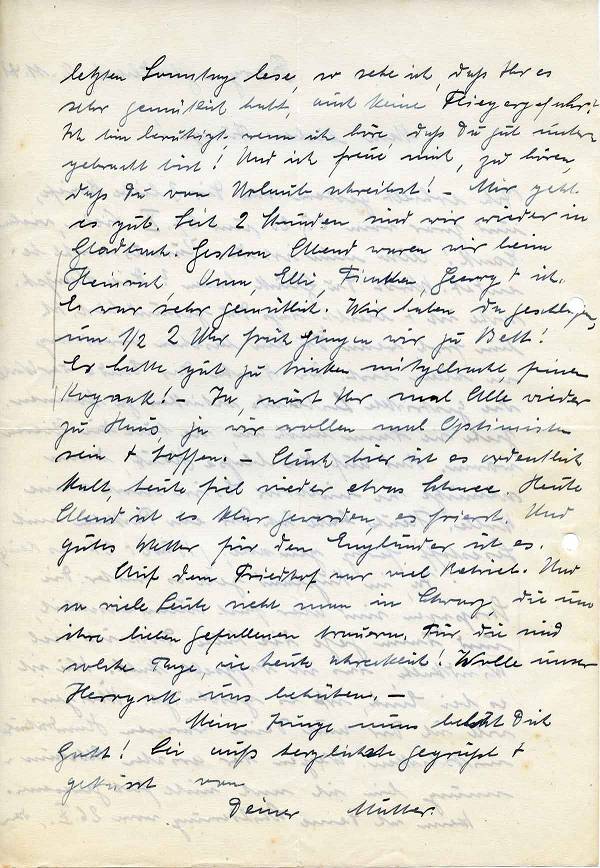 letzten Sonntag lese, so sehe ich, daß Ihr es
sehr gemütlich habt, und keine Fliegergefahr!
Ich bin beruhigt, wenn ich höre, daß Du gut unter-
gebracht bist! Und ich freue mich, zu hören,
daß Du von Urlaub schreibst! – Mir geht
es gut. Seit 2 Stunden sind wir wieder in
Gladbach. Gestern Abend waren wir beim
Heinrich, Anna, Elli, Georg + ich.
Es war sehr gemütlich. Wir haben da geschlafen,
um 1/2 2 Uhr früh gingen wir zu Bett!
Er hatte gut zu trinken mitgebracht, feinen
Kognak! – Ja, wärt Ihr mal Alle wieder
zu Haus, ja wir wollen mal Optimisten
sein + hoffen. – Auch hier ist es ordentlich
kalt, heute fiel wieder etwas Schnee. Heute
Abend ist es klar geworden, es friert. Und
gutes Wetter für den Engländer ist es.
Auf dem Friedhof war viel Betrieb. Und
so viele Leute sieht man in Schwarz, die um
ihre lieben Gefallenen trauern. Für die sind
solche Tage, wie heute schrecklich! Wolle unser
Herrgott uns behüten. –
Mein Junge nun behüt Dich
Gott! Sei aufs herzlichste gegrüßt +
geküsst von
Deiner Mutter.